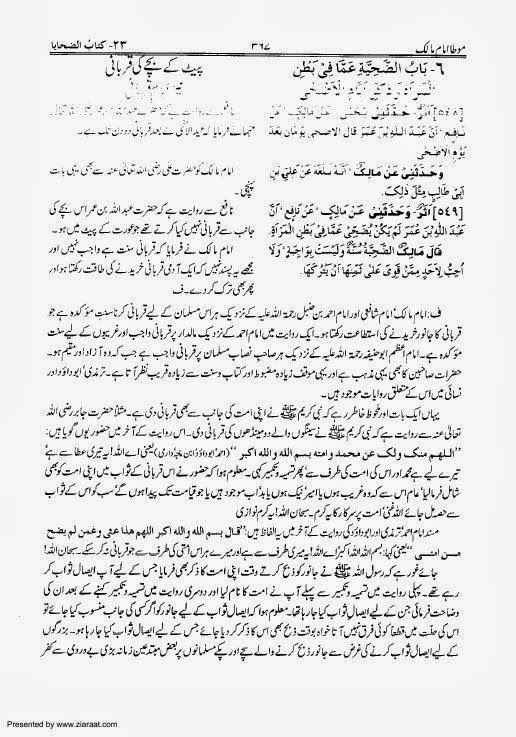 موطا امام مالک ۳۶۷ ۲۳- کتاب الضحایا
۶- بَابُ الضَّحِيَّةِ عَمَّا فِيْ بَطْنِ
پیٹ کے بچے کی قربانی
اَثَرٌ- حَدَّثَنِيْ
نَافِعٍ ' اَنَّ عَبْدَ اللّٰهِ بْنَ عُمَرَ قَالَ الْاَضْحٰى يَوْمَانِ بَعْدَ
يَوْمِ الْاَضْحٰى
وَحَدَّثَنِيْ عَنْ مَالِكٍ ' اَنَّهُ بَلَغَهُ عَنْ عَلِيِّ بْنِ
اَبِيْ طَالِبٍ مِثْلُ ذٰلِكَ.
[۵۴۹] اَثَرٌ- وَحَدَّثَنِيْ عَنْ مَالِكٍ ' عَنْ نَافِعٍ ' اَنَّ
عَبْدَ اللّٰهِ بْنَ عُمَرَ لَمْ يَكُنْ يُضَحِّيْ عَمَّا فِيْ بَطْنِ الْمَرْاَةِ.
قَالَ مَالِكٌ الضَّحِيَّةُ سُنَّةٌ وَلَيْسَتْ بِوَاجِبَةٍ ' وَلَا
اُحِبُّ لِاَحَدٍ مِمَّنْ قَوِيَ عَلٰى ثَمَنِهَا اَنْ يَتْرُكَهَا.
امام مالک کو حضرت علی رضی اللہ تعالیٰ عنہ سے بھی یہی بات
پہنچی۔
نافع سے روایت ہے کہ حضرت عبداللہ بن عمر اس بچے کی
جانب سے قربانی نہیں کیا کرتے تھے جو عورت کے پیٹ میں ہو۔
امام مالک نے فرمایا کہ قربانی سنت ہے واجب نہیں اور
مجھے یہ پسند نہیں کہ ایک آدمی قربانی خریدنے کی طاقت رکھتا ہو اور
پھر بھی ترک کر دے۔ ف
ف: امام مالک' امام شافعی اور امام احمد بن حنبل رحمۃ اللہ علیہ کے نزدیک ہر اس مسلمان کے لیے قربانی کرنا سنت مؤکدہ ہے جو
قربانی کا جانور خریدنے کی استطاعت رکھتا ہو۔ ایک روایت میں امام احمد کے نزدیک مالدار پر قربانی واجب اور غریبوں کے لیے سنت
مؤکدہ ہے۔ امام اعظم ابوحنیفہ رحمۃ اللہ علیہ کے نزدیک ہر صاحب نصاب مسلمان پر قربانی واجب ہے جب کہ وہ آزاد اور مقیم ہو۔
حضرات صاحبین کا بھی یہی مذہب ہے اور یہی موقف زیادہ مضبوط اور کتاب و سنت سے زیادہ قریب نظر آتا ہے۔ ترمذی' ابوداؤد اور
نسائی میں اس کے متعلق روایات موجود ہیں۔
یہاں ایک بات اور ملحوظ خاطر رہے کہ نبی کریم ﷺ نے اپنی امت کی جانب سے بھی قربانی دی ہے۔ مثلاً حضرت جابر رضی اللہ
تعالیٰ عنہ سے روایت ہے کہ نبی کریم ﷺ نے سینگوں والے دو مینڈھوں کی قربانی دی۔ اس روایت کے آخر میں حضور یوں گویا ہیں:
''اللهم منك ولك عن محمد وامته بسم الله والله اكبر'' (احمد' ابوداؤد' ابن ماجہ' دارمی) یعنی اے اللہ! یہ تیری عطا سے ہے
تیرے لیے ہے محمد اور اس کی امت کی طرف سے' پھر تسمیہ و تکبیر کہی۔ معلوم ہوا کہ حضور نے اس قربانی کے ثواب میں اپنی امت کو بھی
شامل فرما لیا' عام اس سے کہ وہ غریب ہوں یا امیر' نیک ہوں یا بد' اب موجود ہیں یا جو قیامت تک پیدا ہوں گے' سب کو اس کے ثواب
سے حصہ مل جائے
مسند امام احمد' ترمذی اور ابوداؤد کی روایت کے آخر میں یہ الفاظ ہیں: ''قال بسم الله والله اكبر اللهم هذا عني وعمن لم يضح
من امتي'' یعنی کہا: بسم اللہ' اللہ اکبر' اے اللہ! یہ میری طرف سے ہے اور میرے ہر اس امتی کی طرف سے جو قربانی نہ کر سکے۔ سبحان اللہ!
جائے غور ہے کہ رسول اللہ ﷺ نے جانور کو ذبح کرتے وقت اپنی امت کا ذکر بھی فرمایا جس کے لیے آپ ایصال ثواب کر
رہے تھے۔ پہلی روایت میں تسمیہ و تکبیر سے پہلے آپ نے امت کا نام لیا اور دوسری روایت میں تسمیہ و تکبیر کہنے کے بعد ان کی
وضاحت فرمائی جن کے لیے ایصال ثواب کیا جا رہا تھا۔ معلوم ہوا کہ ایصال ثواب کے لیے جانور کو اگر کسی کی جانب منسوب کیا جائے تو
اس کی حلت میں قطعاً کوئی فرق نہیں آتا خواہ بوقت ذبح بھی اس کا ذکر کر دیا جائے جس کے لیے ایصال ثواب کیا جا رہا ہو۔ بزرگوں
کے لیے ایصال ثواب کرنے کی غرض سے جانور ذبح کرنے والے سچے اور پکے مسلمانوں پر بعض مبتدعین زمانہ بڑی بے دردی سے کفر
Presented by www.ziaraat.com